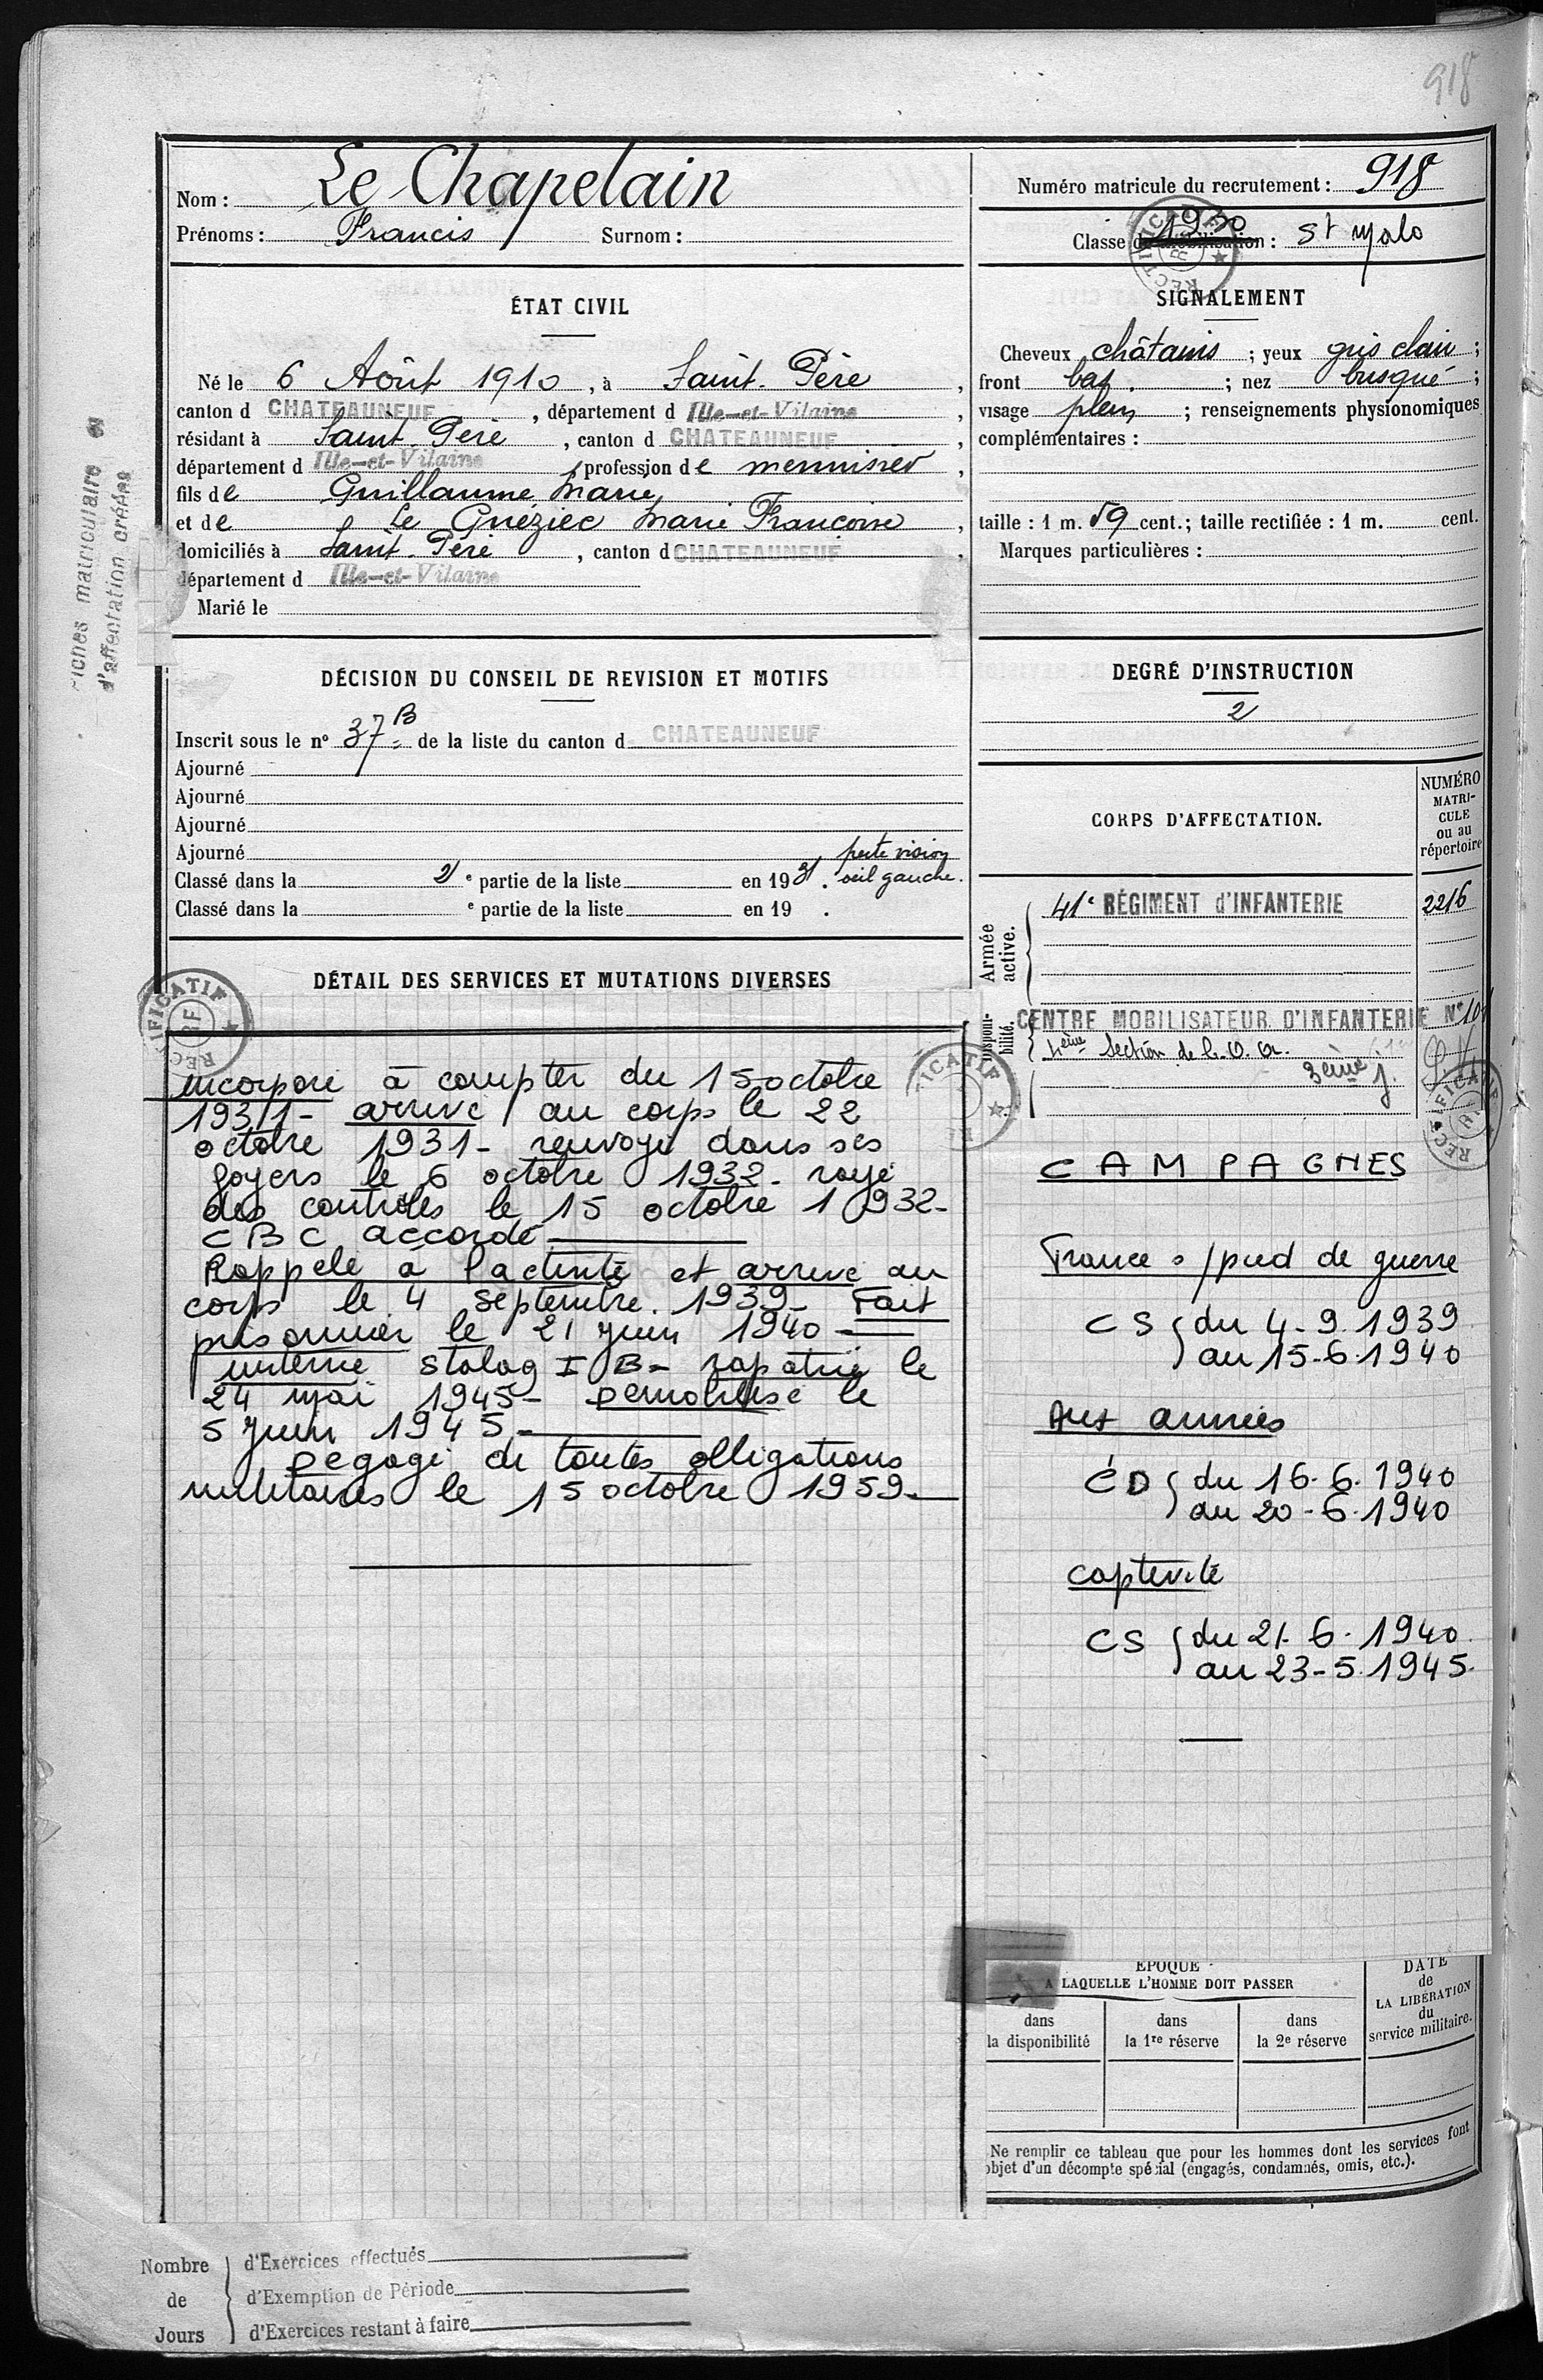 918
Nom : Le Chapelain
Prénoms : Francis Surnom :
Numéro matricule du recrutement : 918
Classe de mobilisation : 1930 St Malo
RECTIFICATIF RF
ÉTAT CIVIL
Né le 6 Août 1910, à Saint-Père,
canton d CHATEAUNEUF, département d Ille-et-Vilaine,
résidant à Saint-Père, canton d CHATEAUNEUF,
département d Ille-et-Vilaine, profession de menuisier,
fils de Guillaume Marie
et de Le Guéziec Marie Françoise,
domiciliés à Saint-Père, canton d CHATEAUNEUF,
département d Ille-et-Vilaine
Marié le
SIGNALEMENT
Cheveux châtains ; yeux gris clair ;
front bas ; nez busqué ;
visage plein ; renseignements physionomiques
complémentaires :
taille : 1 m. 59 cent.; taille rectifiée : 1 m. cent.
Marques particulières :
fiches matriculaire et
d'affectation créées
DÉCISION DU CONSEIL DE REVISION ET MOTIFS
Inscrit sous le n° 37 B de la liste du canton d CHATEAUNEUF
Ajourné
Ajourné
Ajourné
Ajourné
Classé dans la 2e partie de la liste en 1931. perte vision
oeil gauche.
Classé dans la e partie de la liste en 19 .
DEGRÉ D'INSTRUCTION
2
CORPS D'AFFECTATION.
NUMÉRO
MATRI-
CULE
ou au
répertoire
Armée
active.
41e RÉGIMENT d'INFANTERIE 2216
Disponi-
bilité.
CENTRE MOBILISATEUR D'INFANTERIE N° 101
4ème Section de C.O.A.
3ème
DÉTAIL DES SERVICES ET MUTATIONS DIVERSES
RECTIFICATIF RF
incorporé à compter du 15 octobre
1931- arrivé au corps le 22
octobre 1931- renvoyé dans ses
foyers le 6 octobre 1932- rayé
des contrôles le 15 octobre 1932-
CBC accordé
Rappelé à l'activité et arrivé au
corps le 4 septembre 1939- Fait
prisonnier le 21 juin 1940-
interné stalag I B- rapatrié le
24 mai 1945- Démobilisé le
5 juin 1945-
Dégagé de toutes obligations
militaires le 15 octobre 1959-
RECTIFICATIF
CAMPAGNES
France s/pied de guerre
CS { du 4-9-1939
au 15-6-1940
Aux armées
CD { du 16-6-1940
au 20-6-1940
captivité
CS { du 21-6-1940
au 23-5-1945
EPOQUE
A LAQUELLE L'HOMME DOIT PASSER
DATE
de
LA LIBÉRATION
du
service militaire.
dans
la disponibilité
dans
la 1re réserve
dans
la 2e réserve
Ne remplir ce tableau que pour les hommes dont les services font
objet d'un décompte spécial (engagés, condamnés, omis, etc.).
Nombre
de
Jours
d'Exercices effectués
d'Exemption de Période
d'Exercices restant à faire